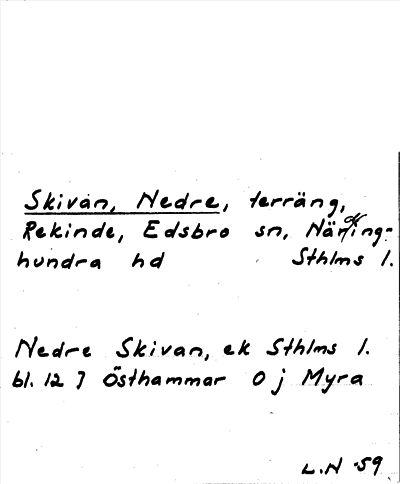 Skivan, Nedre, terräng,
Rekinde, Edsbro sn, Närding-
hundra hd Sthlms l.
Nedre Skivan, ek Sthlms l.
bl. 12 7 Östhammar O j Myra
L.N. 59